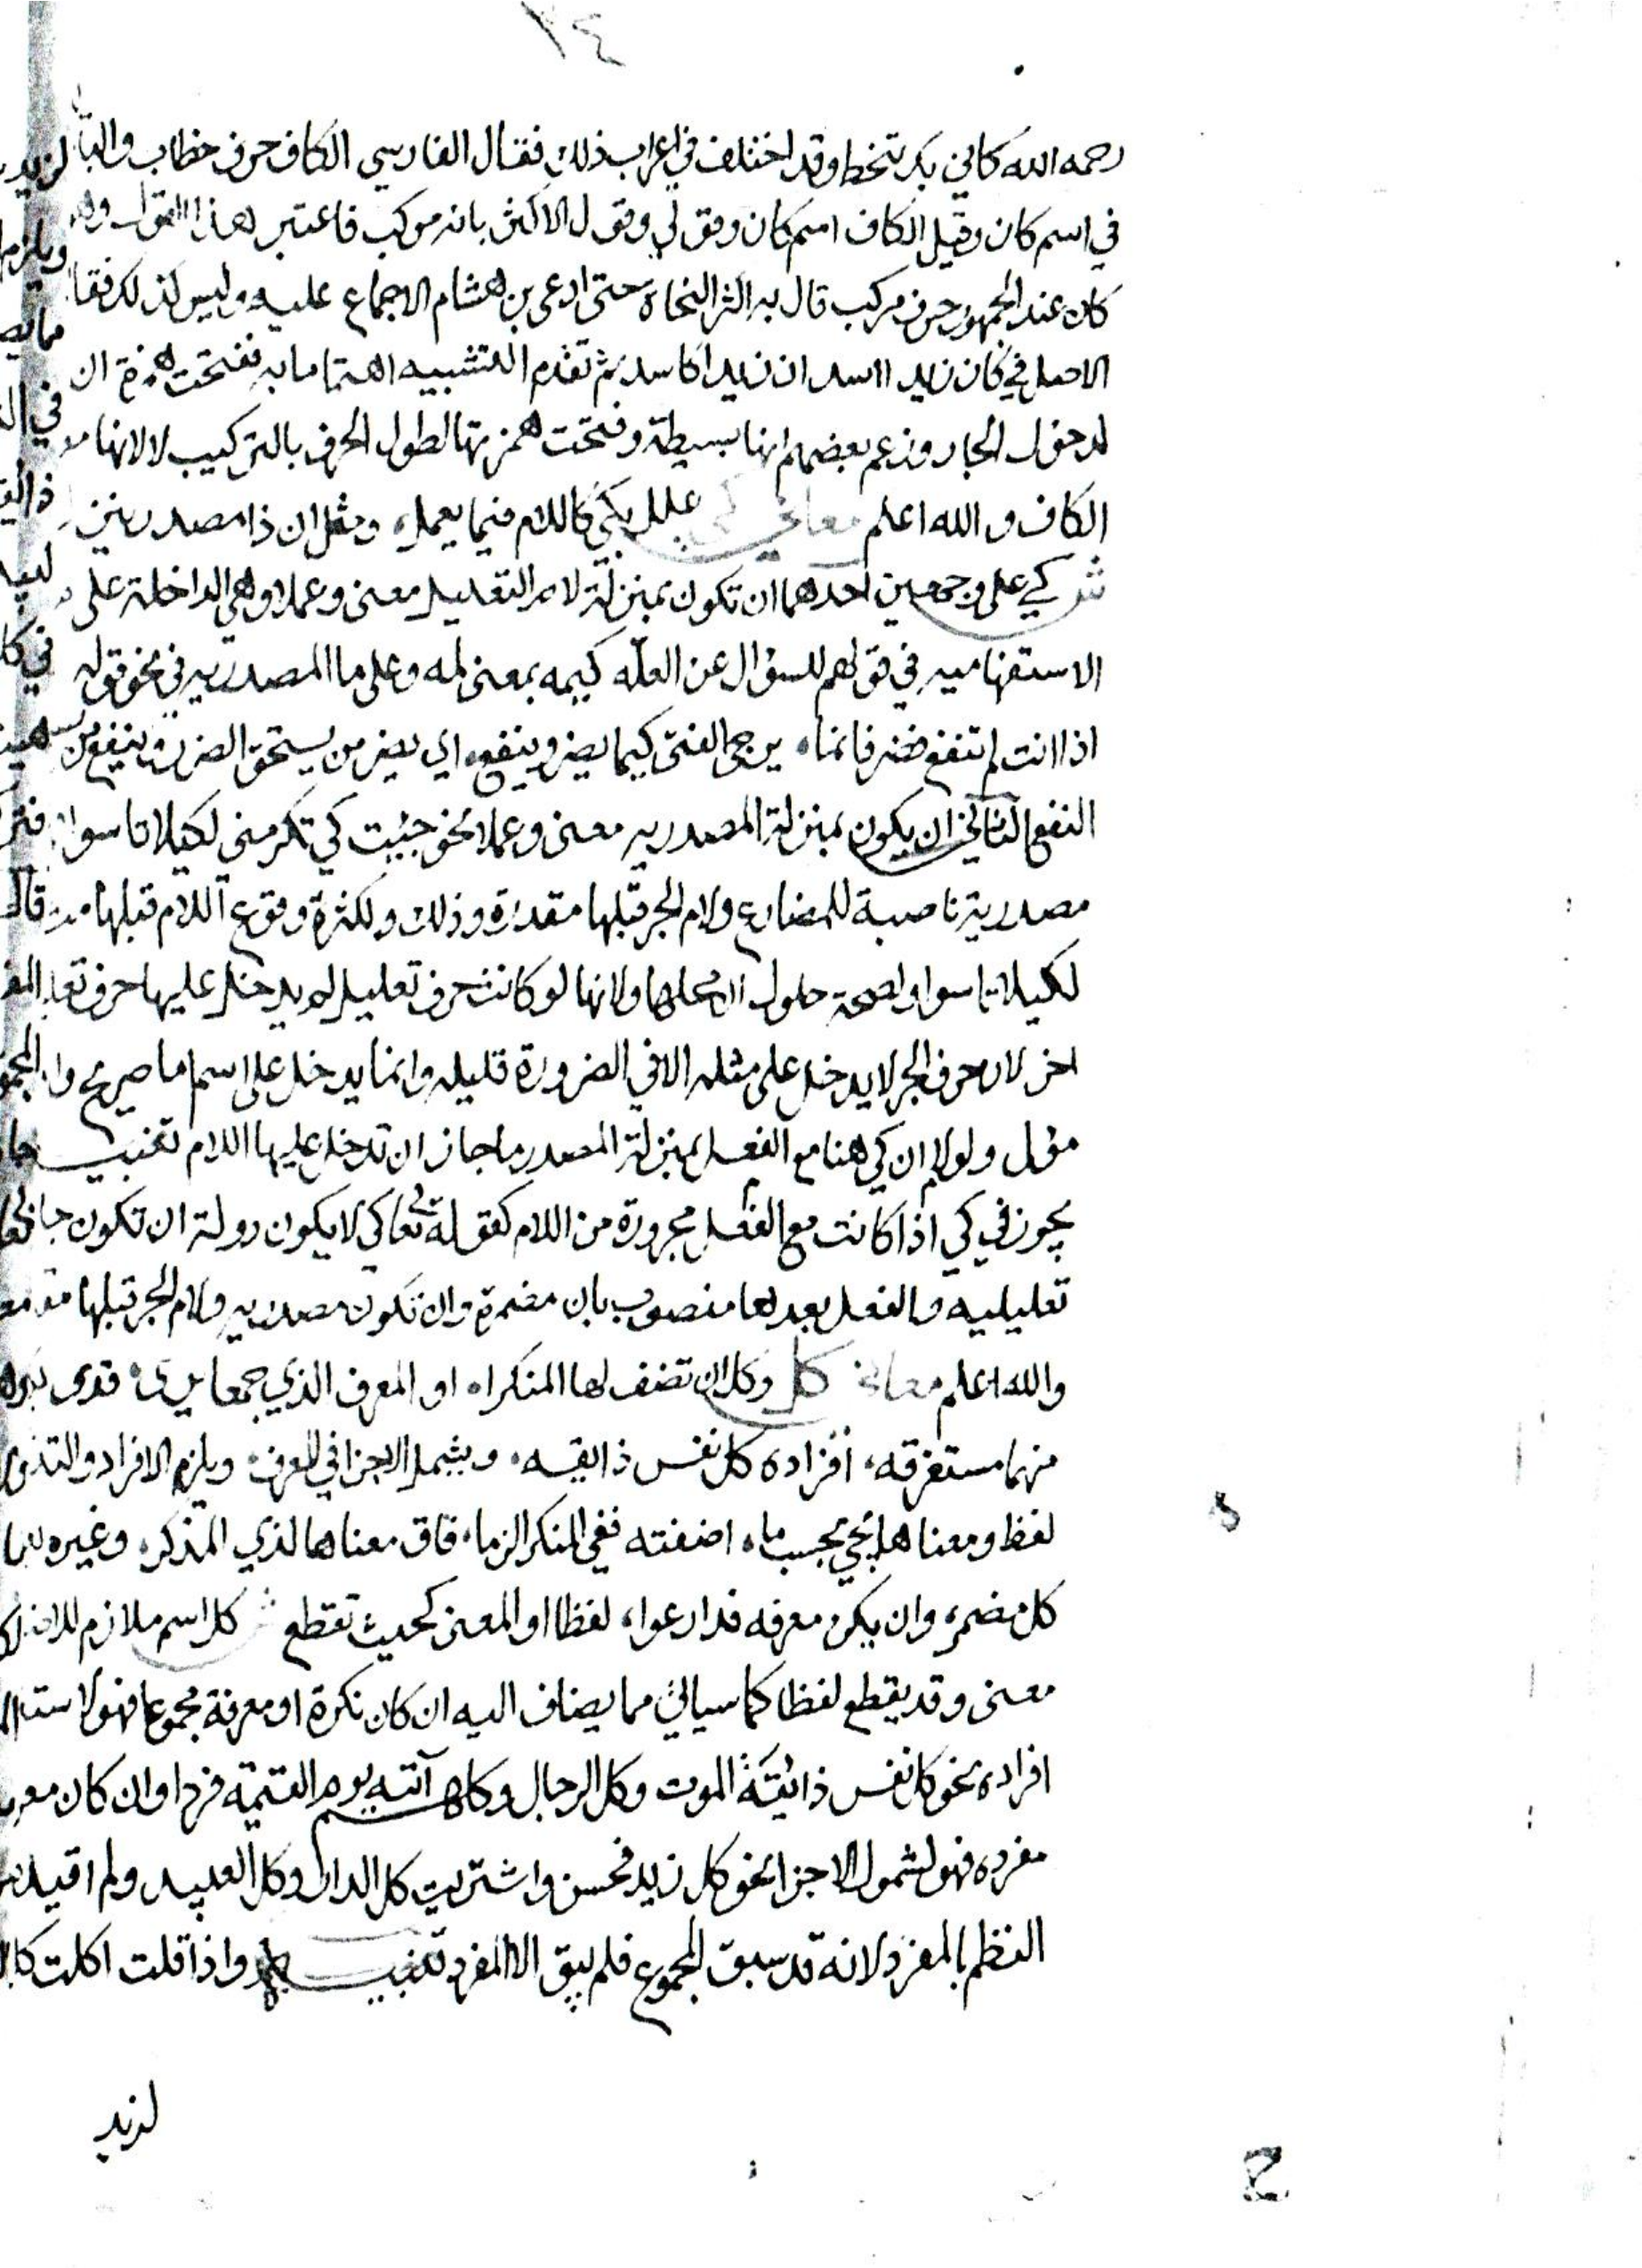 ١٤
رحمه الله كاني بكر تنحط وقد اختلف في اعراب ذلك فقال الفارسي الكاف حرف خطاب والبا
في اسم كان وقيل الكاف اسم كان وقولي وقول الاكثر بانه مركب فاعتبر هذا القول
كان عند الجمهور حرف مركب قال به اكثر النحاة حتى ادعى بن هشام الاجماع عليه وليس كذلك فقا
الاصل في كان زيد ااسد ان زيدا كاسد ثم تقدم التشبيه اهتماما به ففتحت همزة ان
لدخول الجار وزعم بعضهم انها بسيطة وفتحت همزتها لطول الحرف بالتركيب لا لانها
الكاف والله اعلم معاني كي علل بكي كاللام فيما يعمله ومثل ان ذا مصدر
ش كي على وجهين احدهما ان تكون بمنزلة لام التعليل معنى وعملا وهي الداخلة على
الاستفهاميه في قولهم للسؤال عن العله كيمه بمعنى لمه وعلى ما المصدريه في نحو قوله
اذا انت لم تنفع فضر فانما، يرجى الفتى كيما يضر وينفع، اي يضر من يستحق الضر وينفع من
النفع الثاني ان يكون بمنزلة المصدريه معنى وعملا نحو جئت كي تكرمني لكيلا تاسوا
مصدرية ناصبة للمضارع ولام الجر قبلها مقدرة وذلك ولكثرة وقوع اللام قبلها
لكيلا تاسوا ولصحة حلول ان محلها ولانها لو كانت حرف تعليل لم يدخل عليها حرف
اخر لان حرف الجر لا يدخل على مثله الا في الضرورة قليله وانما يدخل على اسم اما صريح
مؤل ولولا ان كي هنا مع الفعل بمنزلة المصدر ما جاز ان تدخل عليها اللام تنبيه
يجوز في كي اذا كانت مع الفعل مجرورة من اللام كقوله تعا كي لا يكون دولة ان تكون جا
تعليليه والفعل بعدها منصوب بان مضمرة وان تكون مصدريه ولام الجر قبلها
والله اعلم معاني كل وكل ان تضف لها المنكرا، او المعرف الذي جمعا يرى، فذى
منهما مستغرقه، افراده كل نفس ذايقه، ويشمل الاجزا في المعرف، ويلزم الافراد والتذ
لفظ ومعناها يجي بحسب ما، اضفته ففي المنكر الزما، فاق معناها لذي المذكر، وغيره
كل مضمر، وان يكن معرفه فدا رعوا، لفظا او المعنى كحيث تقطع ش كل اسم ملازم
معنى وقد يقطع لفظا كما سياتي مما يضاف اليه ان كان نكرة او معرفة مجموعا فهو
افراده نحو كل نفس ذائقة الموت وكل الرجال وكلهم آتيه يوم القيمة فردا وان كان
مفرده فهو لشمول الاجزا نحو كل زيد فحسن واشتريت كل الدار وكل العبيد ولم اقيد
النظم بالمفرد لانه قد سبق المجموع فلم يبق الا المفرد تنبيه واذا قلت اكلت
لزيد